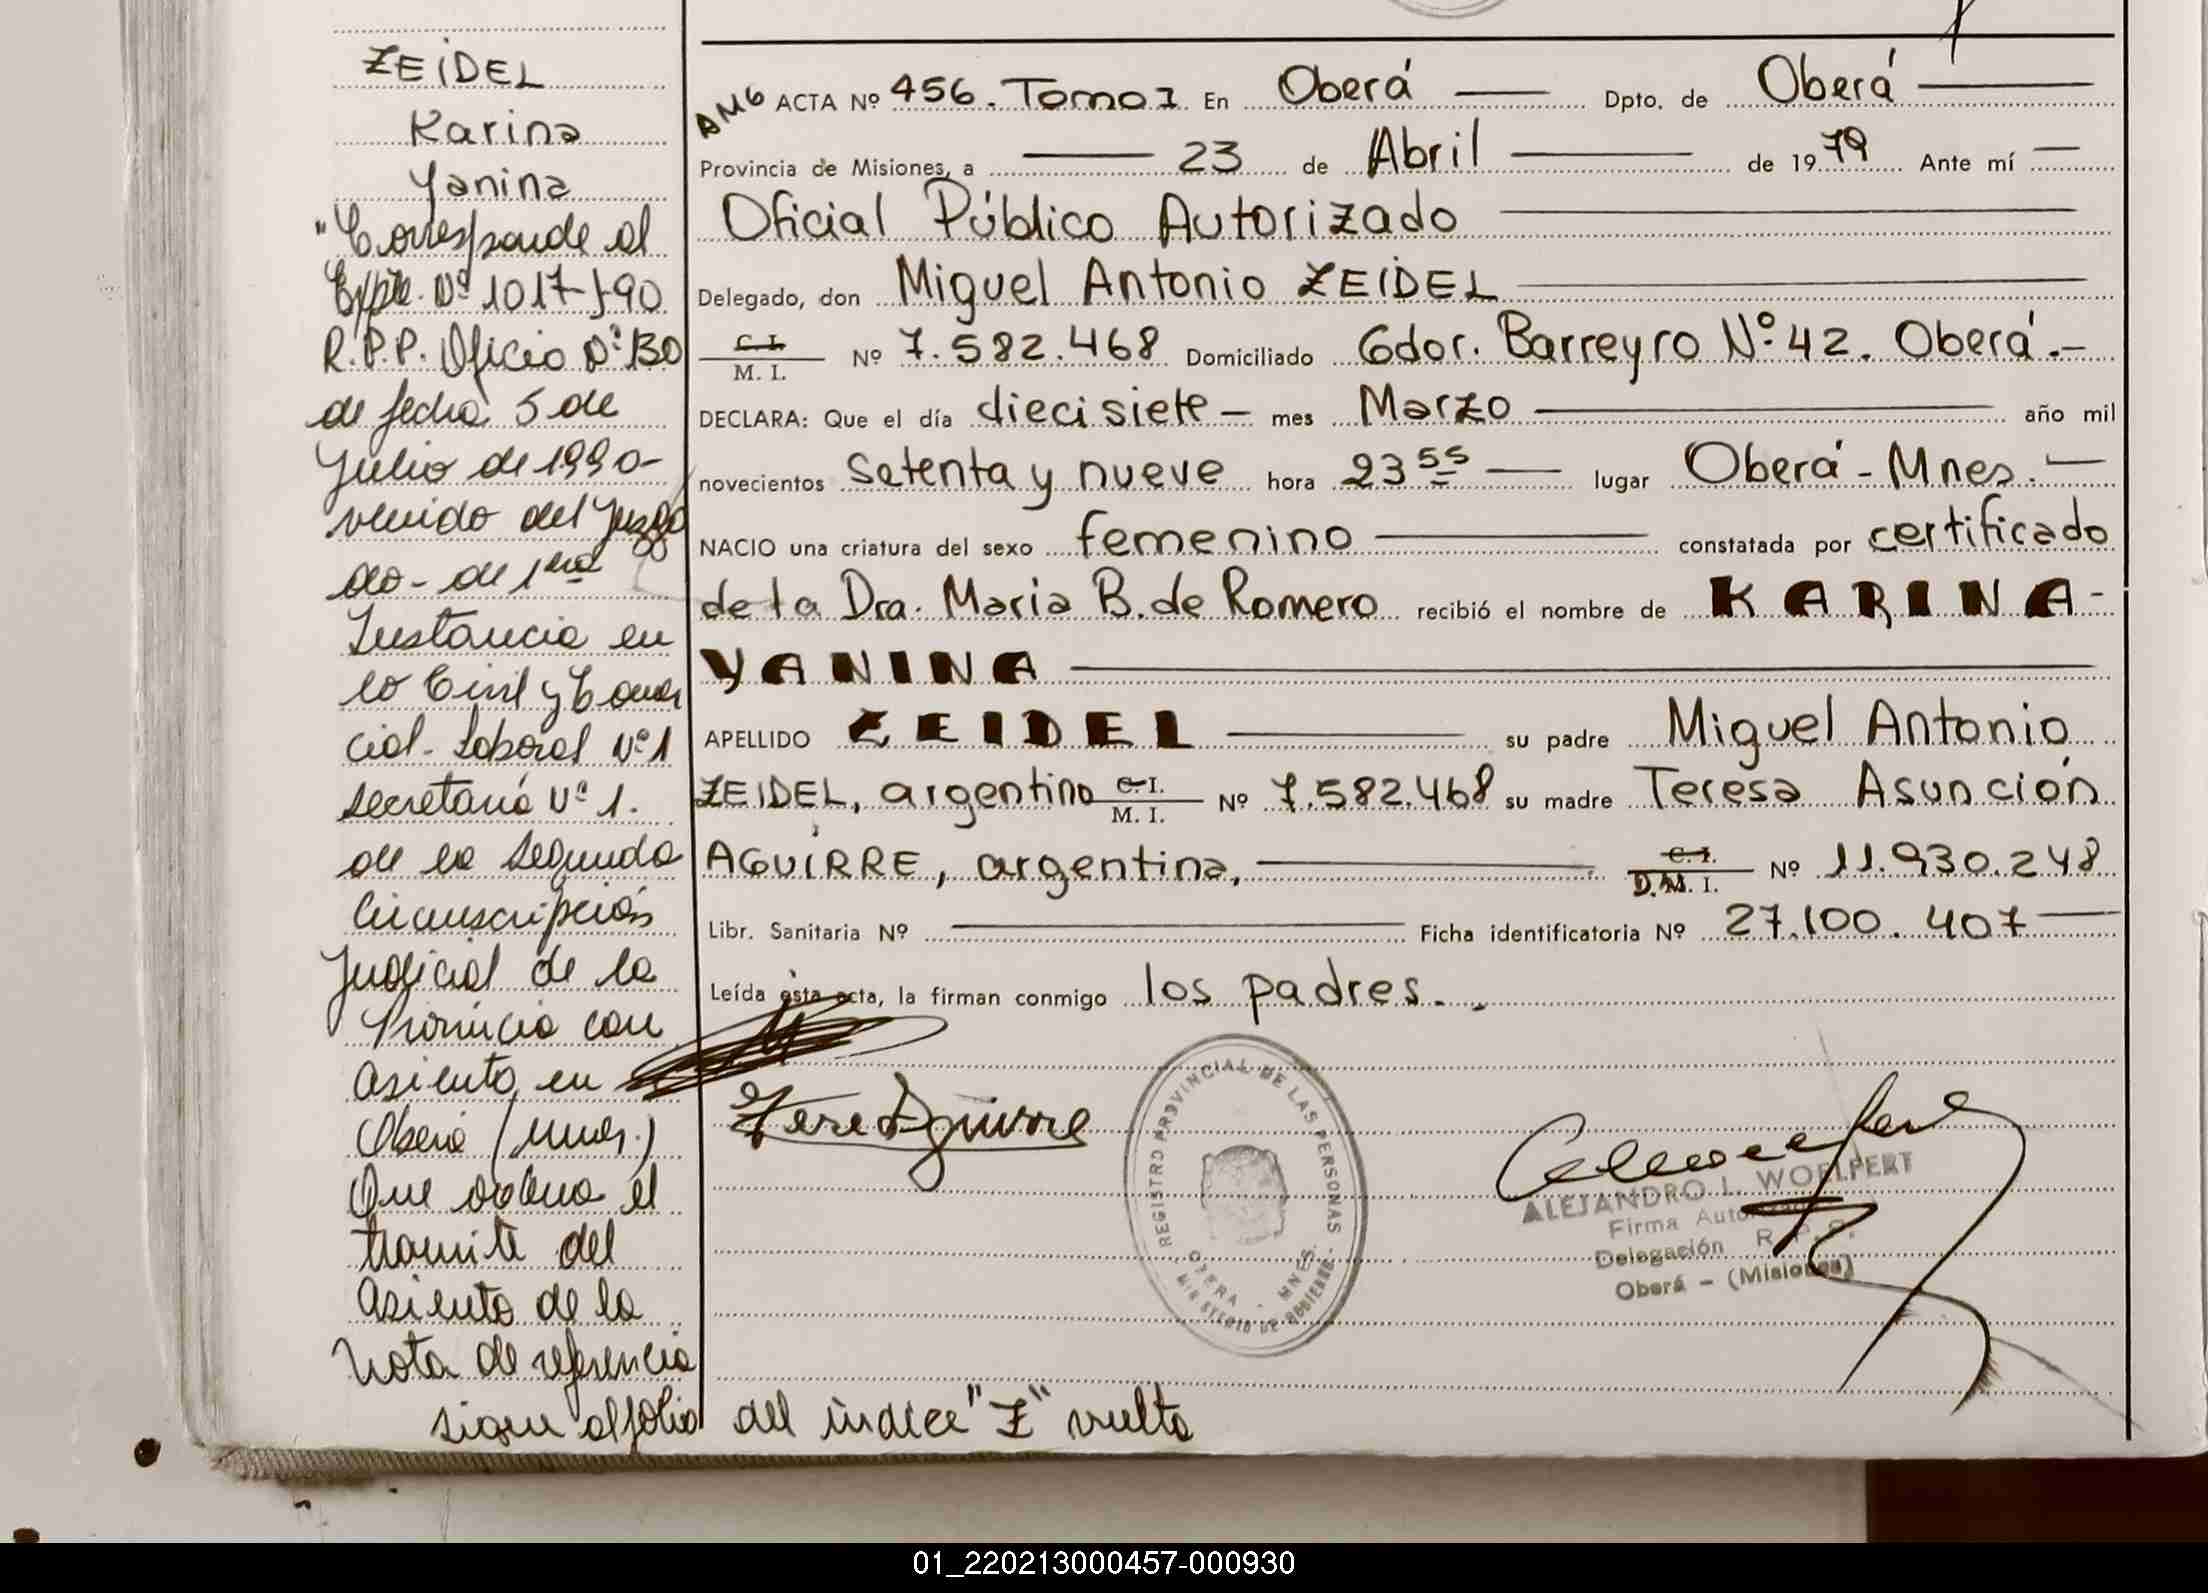 ZEIDEL
Karina
Yanina
"Corresponde al
Expte. Nº 1017-J-90
R.P.P. Oficio Nº 130
de fecha 5 de
Julio de 1990-
venido del Juzga
do- de 1era
Instancia en
lo Civil y Comer
cial- Laboral Nº 1
Secretaria Nº 1.
de la Segunda
Circunscripción
Judicial de la
Provincia con
asiento en
Oberá (Mnes.)
Que ordena el
tramite del
asiento de la
Nota de referencia
sigue al folio del indice "Z" vuelta
AMG ACTA Nº 456. Tomo I En Oberá Dpto. de Oberá
Provincia de Misiones, a 23 de Abril de 1979 Ante mí
Oficial Público Autorizado
Delegado, don Miguel Antonio ZEIDEL
C. I. M. I. Nº 7.582.468 Domiciliado Gdor. Barreyro Nº 42. Oberá.-
DECLARA: Que el día diecisiete - mes Marzo año mil
novecientos setenta y nueve hora 23 55 lugar Oberá - Mnes.
NACIO una criatura del sexo femenino constatada por certificado
de la Dra. Maria B. de Romero recibió el nombre de KARINA-
YANINA
APELLIDO ZEIDEL su padre Miguel Antonio
ZEIDEL, argentino C. I. M. I. Nº 7.582.468 su madre Teresa Asunción
AGUIRRE, argentina, C. I. D.N. I. Nº 11.930.248
Libr. Sanitaria Nº Ficha identificatoria Nº 27.100.407
Leída esta acta, la firman conmigo los padres.
Tere Aguirre
REGISTRO PROVINCIAL DE LAS PERSONAS
OBERA - MNES.
MINISTERIO DE GOBIERNO
ALEJANDRO L. WOELPERT
Firma Autorizada
Delegación R. P. P.
Oberá - (Misiones)
01_220213000457-000930